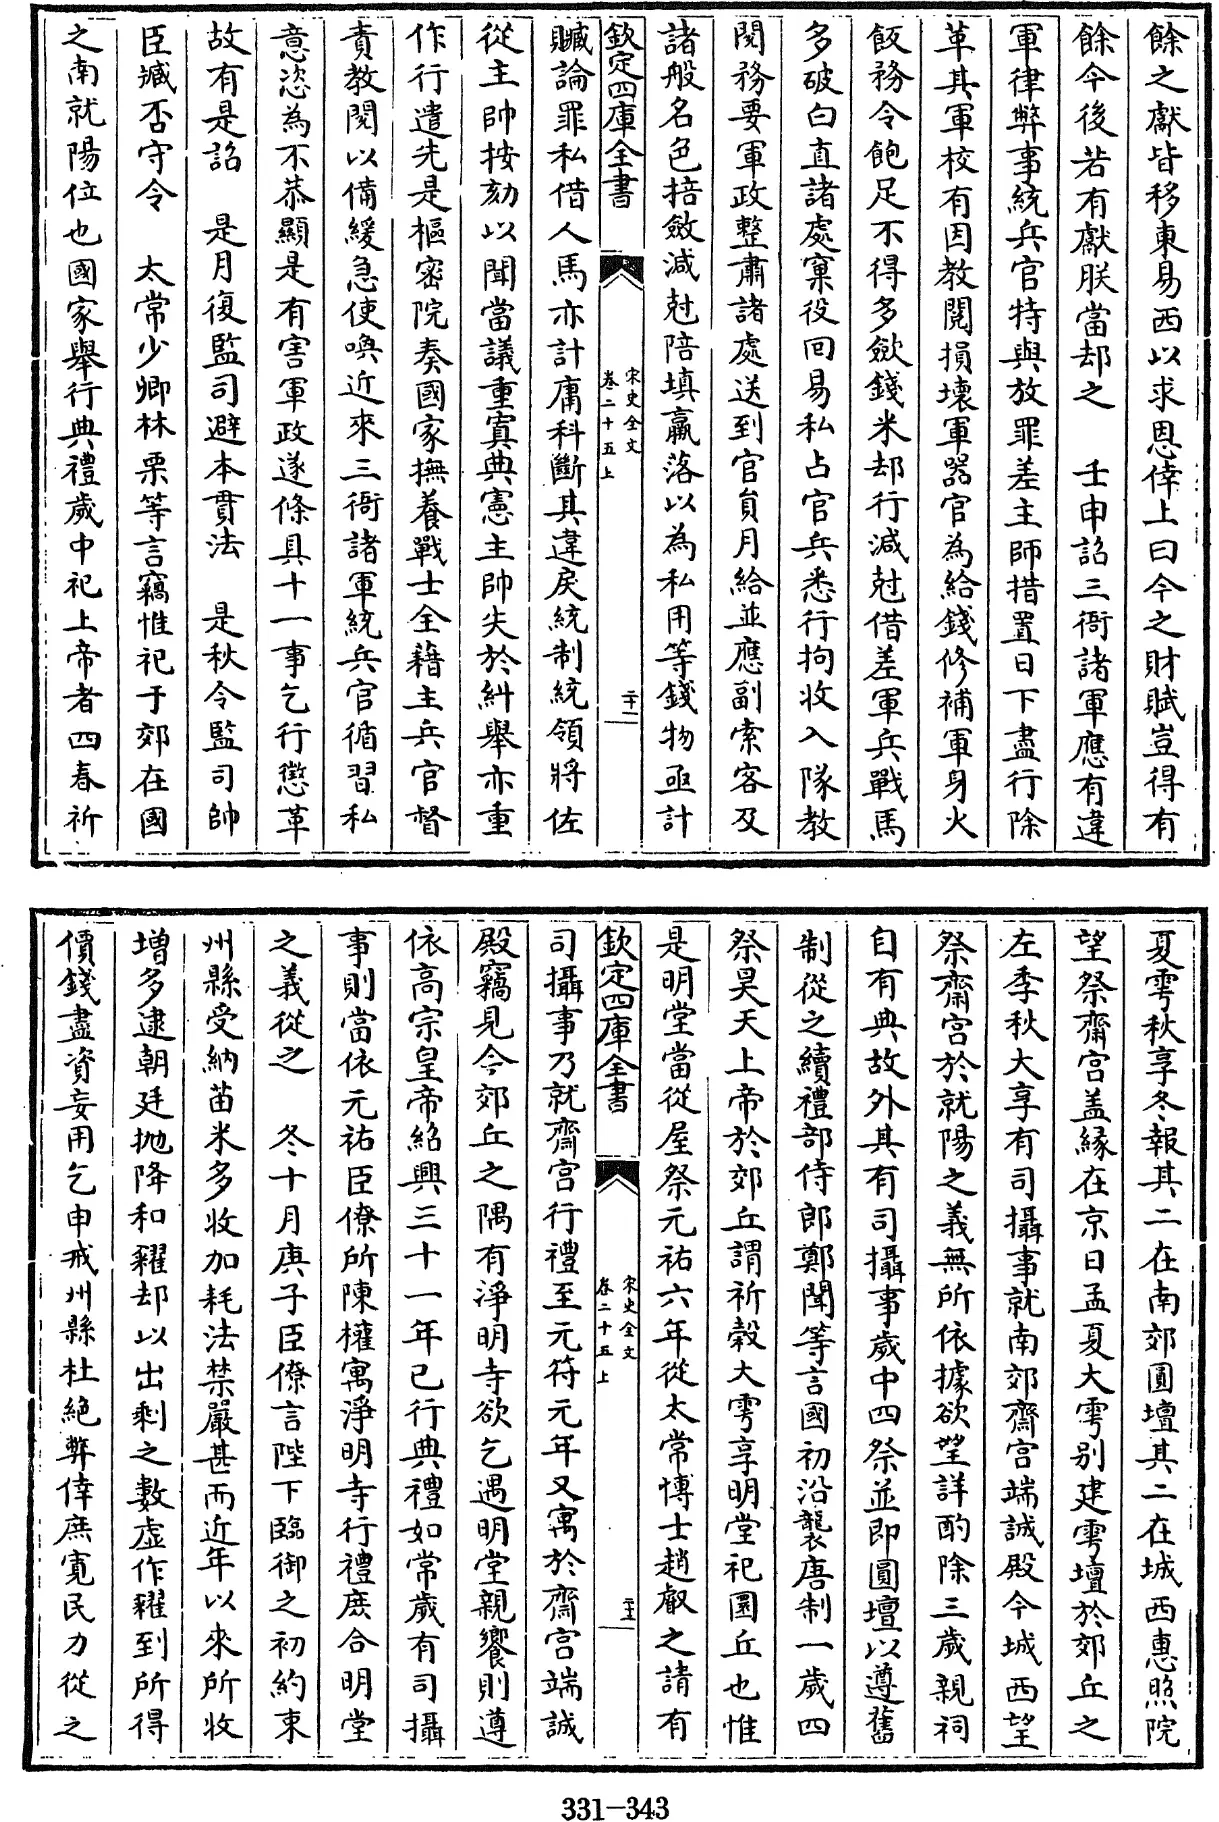 餘之獻皆移東易西以求恩倖上曰今之財賦豈得有
餘今後若有獻朕當却之　壬申詔三衙諸軍應有違
軍律弊事統兵官特與放罪差主師措置日下盡行除
革其軍校有因教閱損壞軍器官為給錢修補軍身火
飯務令飽足不得多歛錢米却行減尅借差軍兵戰馬
多破白直諸處窠役回易私占官兵悉行拘收入隊教
閱務要軍政整肅諸處送到官員月給並應副索客及
諸般名色掊斂減尅陪填贏落以為私用等錢物亟計
欽定四庫全書
宋史全文
卷二十五上
二十一
贓論罪私借人馬亦計庸科斷其違戾統制統領將佐
從主帥按劾以聞當議重寘典憲主帥失於糾舉亦重
作行遣先是樞密院奏國家撫養戰士全藉主兵官督
責教閱以備緩急使喚近來三衙諸軍統兵官循習私
意恣為不恭顯是有害軍政遂條具十一事乞行懲革
故有是詔　是月復監司避本貫法　是秋令監司帥
臣臧否守令　太常少卿林栗等言竊惟祀于郊在國
之南就陽位也國家舉行典禮歲中祀上帝者四春祈
夏雩秋享冬報其二在南郊圓壇其二在城西惠照院
望祭齋宮盖緣在京日孟夏大雩別建雩壇於郊丘之
左季秋大享有司攝事就南郊齋宮端誠殿今城西望
祭齋宮於就陽之義無所依據欲望詳酌除三歲親祠
自有典故外其有司攝事歲中四祭並即圓壇以遵舊
制從之續禮部侍郎鄭聞等言國初沿襲唐制一歲四
祭昊天上帝於郊丘謂祈穀大雩享明堂祀圜丘也惟
是明堂當從屋祭元祐六年從太常博士趙叡之請有
欽定四庫全書
宋史全文
卷二十五上
司攝事乃就齋宮行禮至元符元年又寓於齋宮端誠
殿竊見今郊丘之隅有淨明寺欲乞遇明堂親饗則遵
依高宗皇帝紹興三十一年已行典禮如常歲有司攝
事則當依元祐臣僚所陳權寓淨明寺行禮庶合明堂
之義從之　冬十月庚子臣僚言陛下臨御之初約束
州縣受納苗米多收加耗法禁嚴甚而近年以來所收
增多逮朝廷抛降和糴却以出剩之數虛作糴到所得
價錢盡資妄用乞申戒州縣杜絶弊倖庶寬民力從之
331-343